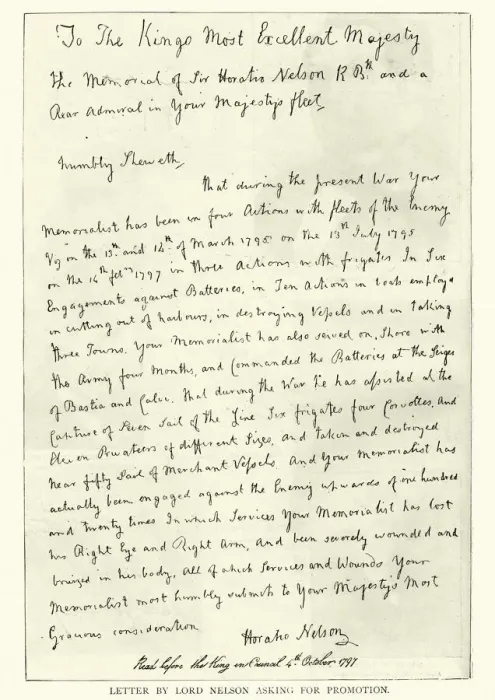 To The Kings Most Excellent Majesty
The Memorial of Sir Horatio Nelson K Bth and a
Rear Admiral in Your Majestys fleet,
humbly Sheweth,
That during the present War Your
Memorialist has been in four Actions with fleets of the Enemy
Vz on the 13th and 14th of March 1795 on the 13th July 1795
on the 14th feby 1797 in three Actions with frigates In Six
Engagements against Batteries, in Ten Actions in boats employd
in cutting out of harbours, in destroying Vessels and in taking
three Towns. Your Memorialist has also served on Shore with
the Army four Months, and Commanded the Batteries at the Sieges
of Bastia and Calvi. That during the War he has assisted at the
Capture of Seven Sail of the Line Six frigates four Corvettes, and
Eleven Privateers of different Sizes, and taken and destroyed
near fifty Sail of Merchant Vessels. And Your Memorialist has
actually been engaged against the Enemy upwards of one hundred
and twenty times In which Services Your Memorialist has lost
his Right Eye and Right Arm, and been severely wounded and
bruized in his body. All of which Services and Wounds Your
Memorialist most humbly submits to Your Majestys Most
Gracious consideration
Horatio Nelson
Read before the King in Council 4th October 1797
LETTER BY LORD NELSON ASKING FOR PROMOTION.